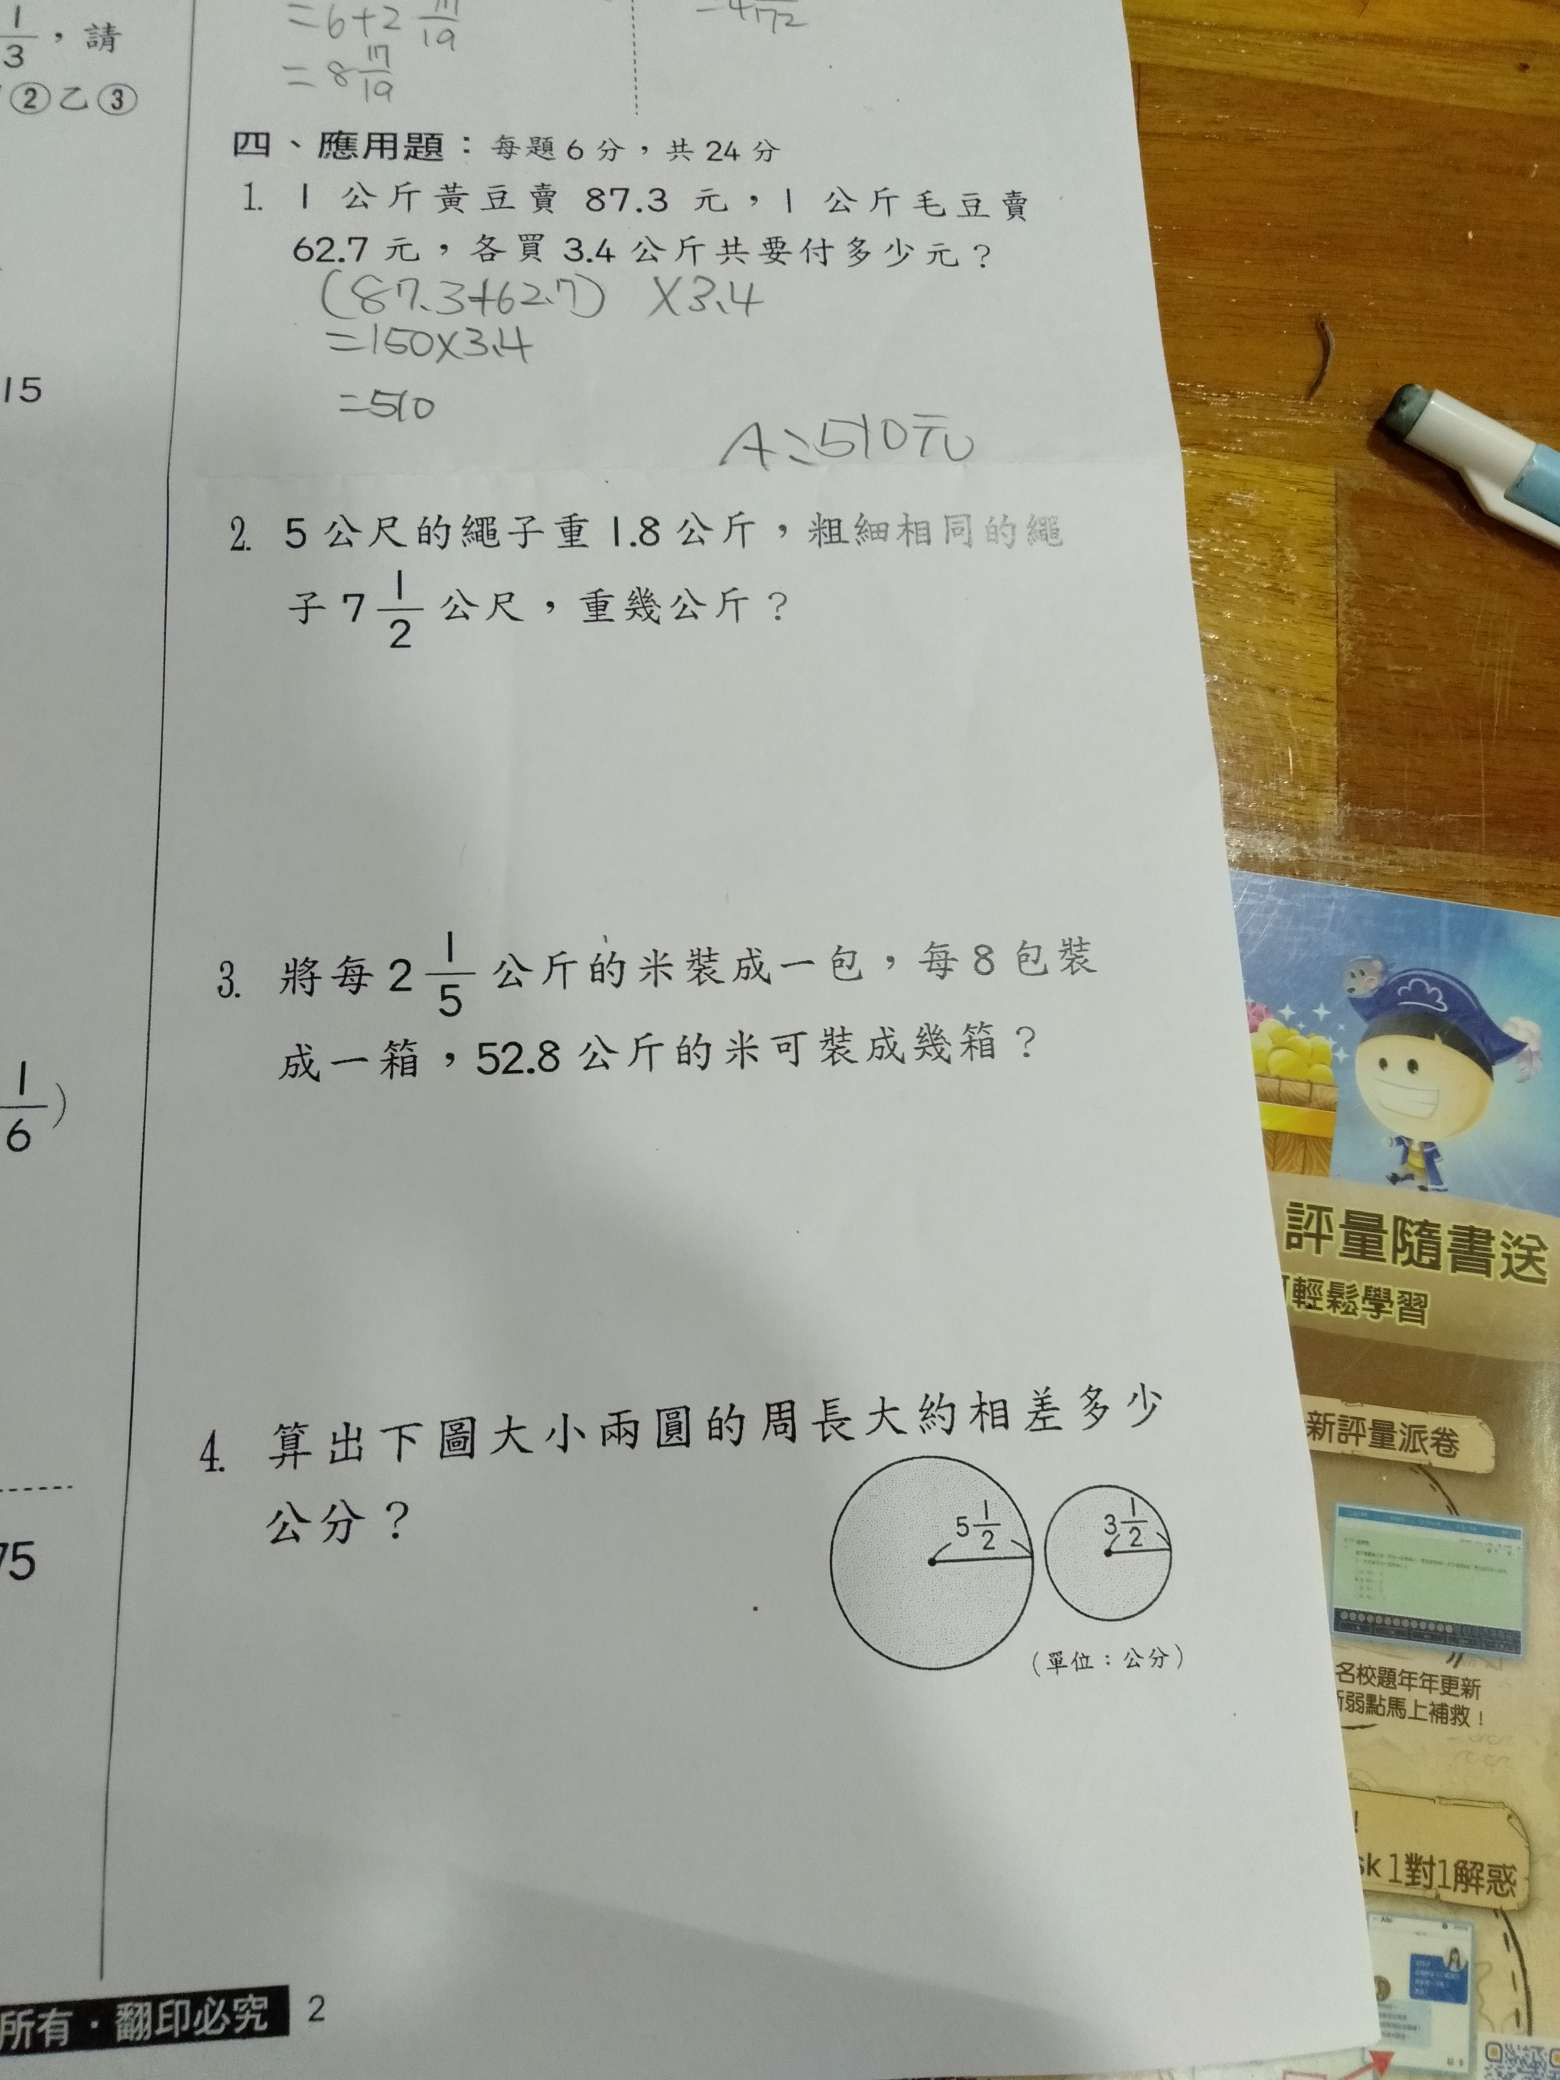 1/3，請
②乙③
15
1/6）
75
=6+2 17/19
=8 17/19
四、應用題：每題6分，共24分
1. 1 公斤黃豆賣 87.3 元，1 公斤毛豆賣
62.7 元，各買 3.4 公斤共要付多少元？
(87.3+62.7) ×3.4
=150×3.4
=510
A：510元
2. 5 公尺的繩子重 1.8 公斤，粗細相同的繩
子 7 1/2 公尺，重幾公斤？
3. 將每 2 1/5 公斤的米裝成一包，每 8 包裝
成一箱，52.8 公斤的米可裝成幾箱？
4. 算出下圖大小兩圓的周長大約相差多少
公分？
5 1/2
3 1/2
(單位：公分)
所有・翻印必究 2
評量隨書送
輕鬆學習
新評量派卷
名校題年年更新
弱點馬上補救！
sk 1對1解惑